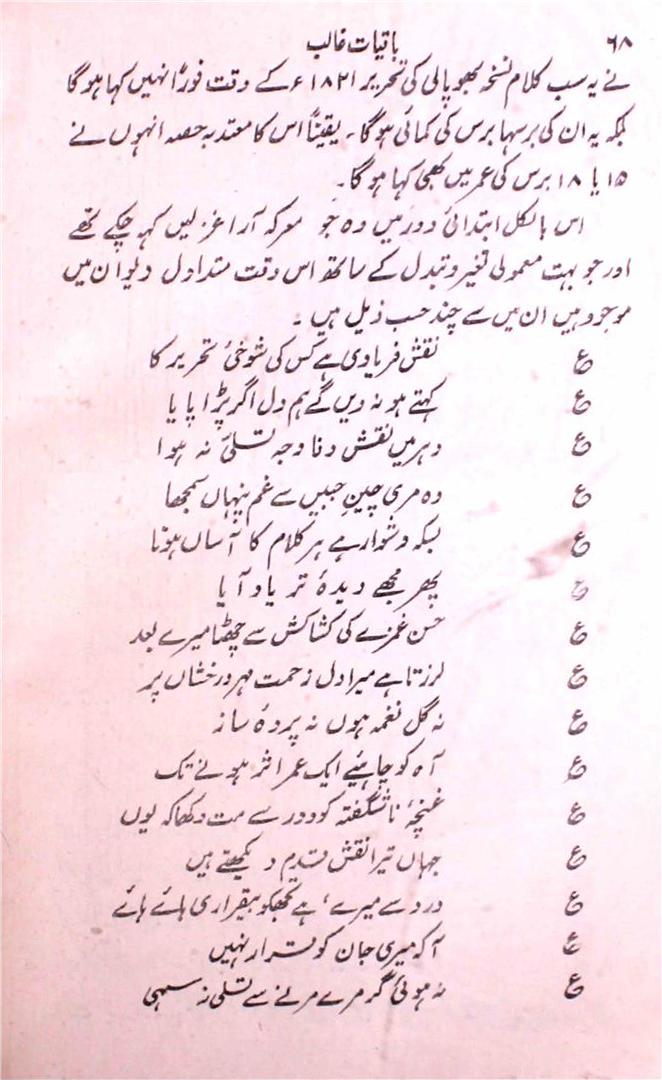 ۶۸ باقیات غالب
نے یہ سب کلام نسخہ بھوپالی کی تحریر ۱۸۲۱ء کے وقت فوراً نہیں کہا ہوگا
بلکہ یہ ان کی برسہا برس کی کمائی ہوگا۔ یقیناً اس کا معتدبہ حصہ انہوں نے
۱۵ یا ۱۸ برس کی عمر میں بھی کہا ہوگا۔
اس بالکل ابتدائی دور میں وہ جو معرکہ آرا غزلیں کہہ چکے تھے
اور جو بہت معمولی تغیر و تبدل کے ساتھ اس وقت متداول دیوان میں
موجود ہیں ان میں سے چند حسب ذیل ہیں۔
ع نقش فریادی ہے کس کی شوخیٔ تحریر کا
ع کہتے ہو نہ دیں گے ہم دل اگر پڑا پایا
ع دہر میں نقش وفا وجہ تسلی نہ ہوا
ع وہ مری چینِ جبیں سے غم پنہاں سمجھا
ع بسکہ دشوار ہے ہر کلام کا آساں ہونا
ع پھر مجھے دیدۂ تر یاد آیا
ع حسن غمزے کی کشاکش سے چھٹا میرے بعد
ع لرزتا ہے میرا دل زحمت مہر درخشاں پر
ع نہ گل نغمہ ہوں نہ پردۂ ساز
ع آہ کو چاہئیے ایک عمر اثر ہونے تک
ع غنچۂ ناشگفتہ کو دور سے مت دکھا کہ یوں
ع جہاں تیرا نقش قدم دیکھتے ہیں
ع درد سے میرے، ہے تجھکو بیقراری ہائے ہائے
ع آ کہ میری جان کو قرار نہیں
ع نہ ہوئی گر مرے مرنے سے تسلی نہ سہی